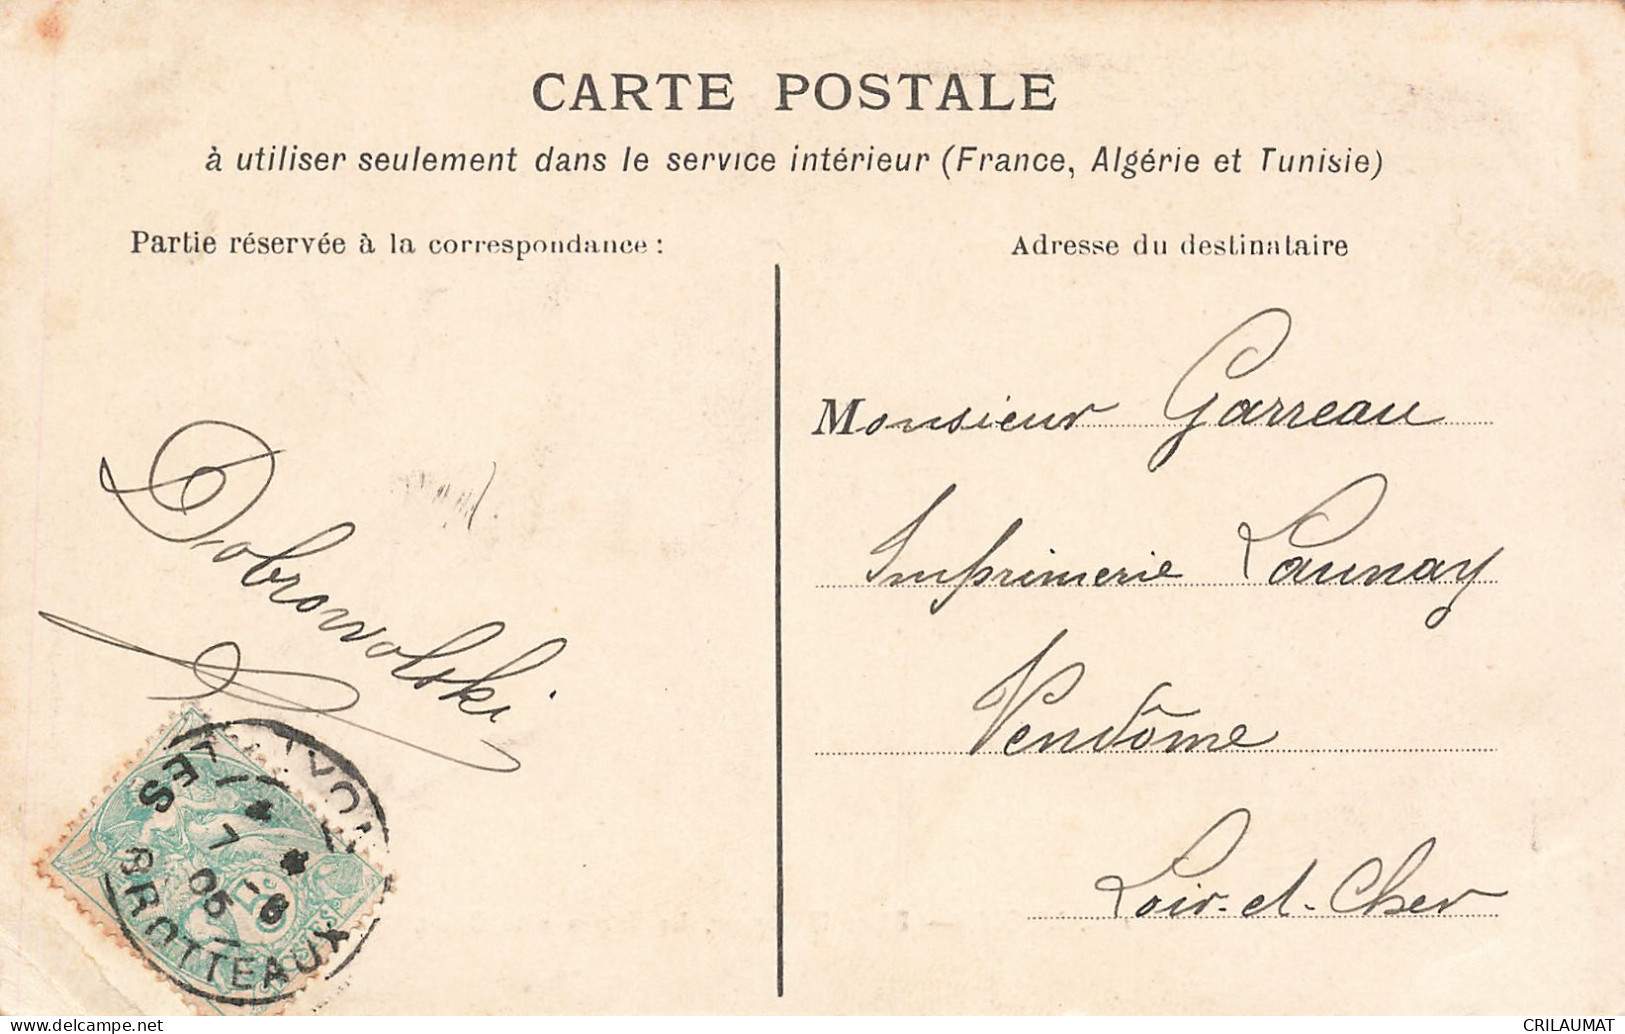 CARTE POSTALE
à utiliser seulement dans le service intérieur (France, Algérie et Tunisie)
Partie réservée à la correspondance :
Adresse du destinataire
Monsieur Garreau
Imprimerie Launay
Vendôme
Loir-et-Cher
Dobrowolski
LES
BROTTEAUX
05
CRILAUMAT